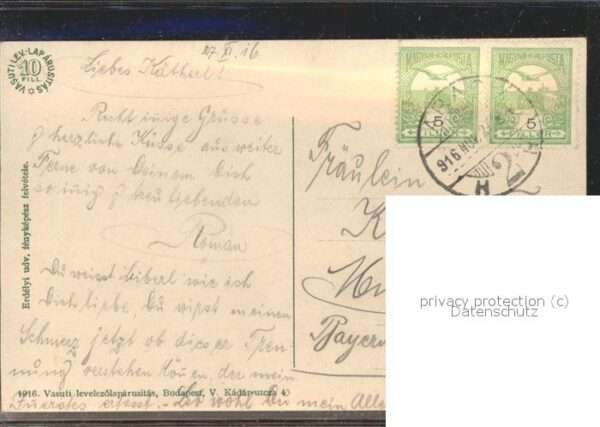 VASUTI LEV.-LAP ÁRUSITÁS
10
FILL.
27. XI. 16
Liebes Kätherl!
Recht innige Grüsse
& herzliche Küsse aus weiter
Ferne von Deinem Dich
so innig & treu liebenden
Roman
Du weisst Liberl wie ich
Dich liebe, Du wirst meinen
Schmerz jetzt ob dieser Tren-
nung verstehen können, der mein
erfasst. - Leb wohl Du mein Alles
1916. Vasuti levelezőlapárusitás, Budapest, V. Kádár-utcza 4
Erdélyi udv. fényképész felvétele.
MAGYAR KIR. POSTA
5
MAGYAR KIR. POSTA
5
916 NOV
Fräulein
K
Mü
Bayern
privacy protection (c)
Datenschutz